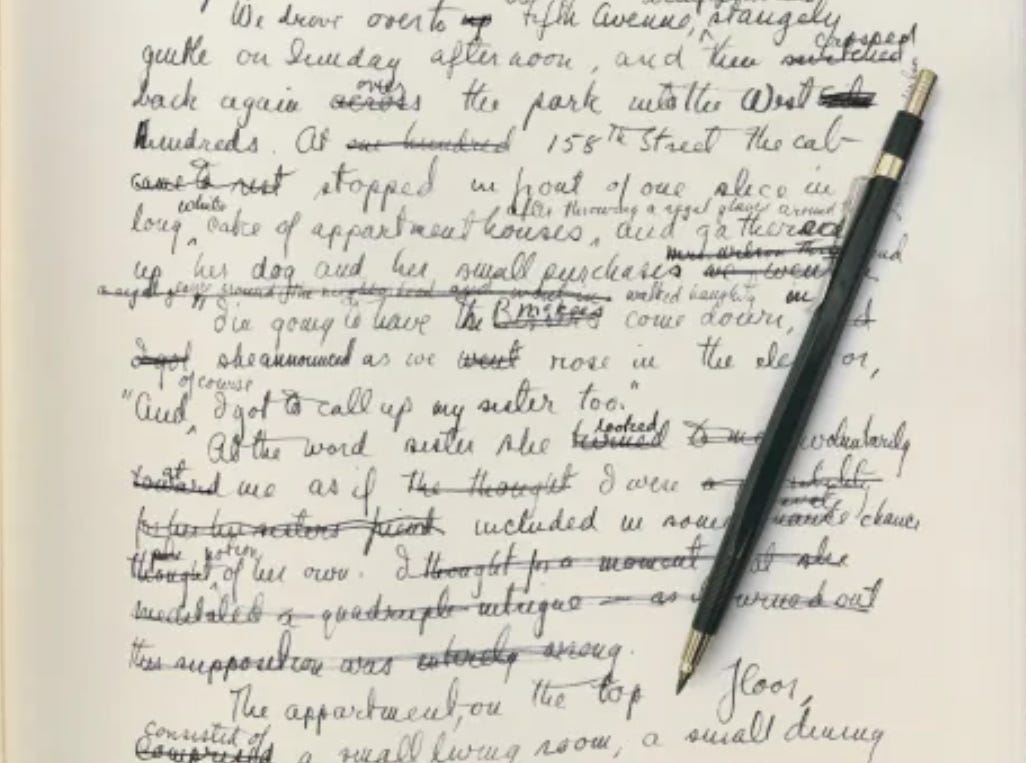 We drove over to up Fifth Avenue, stangely
crossed
quite on Sunday afternoon, and then switched
over
back again across the park into the West
Hundreds. At one hundred 158th Street the cab
came to rest stopped in front of one slice in
white after throwing a regal glance around
long cake of appartment houses, and gathered
up her dog and her small purchases we went
walked haughtily in
Makees
"I'm going to have the come down,
I got she announced as we went rose in the
of course
"And, I got to call up my sister too."
looked
At the word sister she turned to me voluntarily
at
toward me as if the thought I were a
for her her sisters friend included in some chance
notion
thought, of her own. I thought for a moment she
meditated a quadruple intrigue — as turned out
this supposition was entirely wrong.
The appartment, on the top floor,
consisted of
comprised a small living room, a small dining